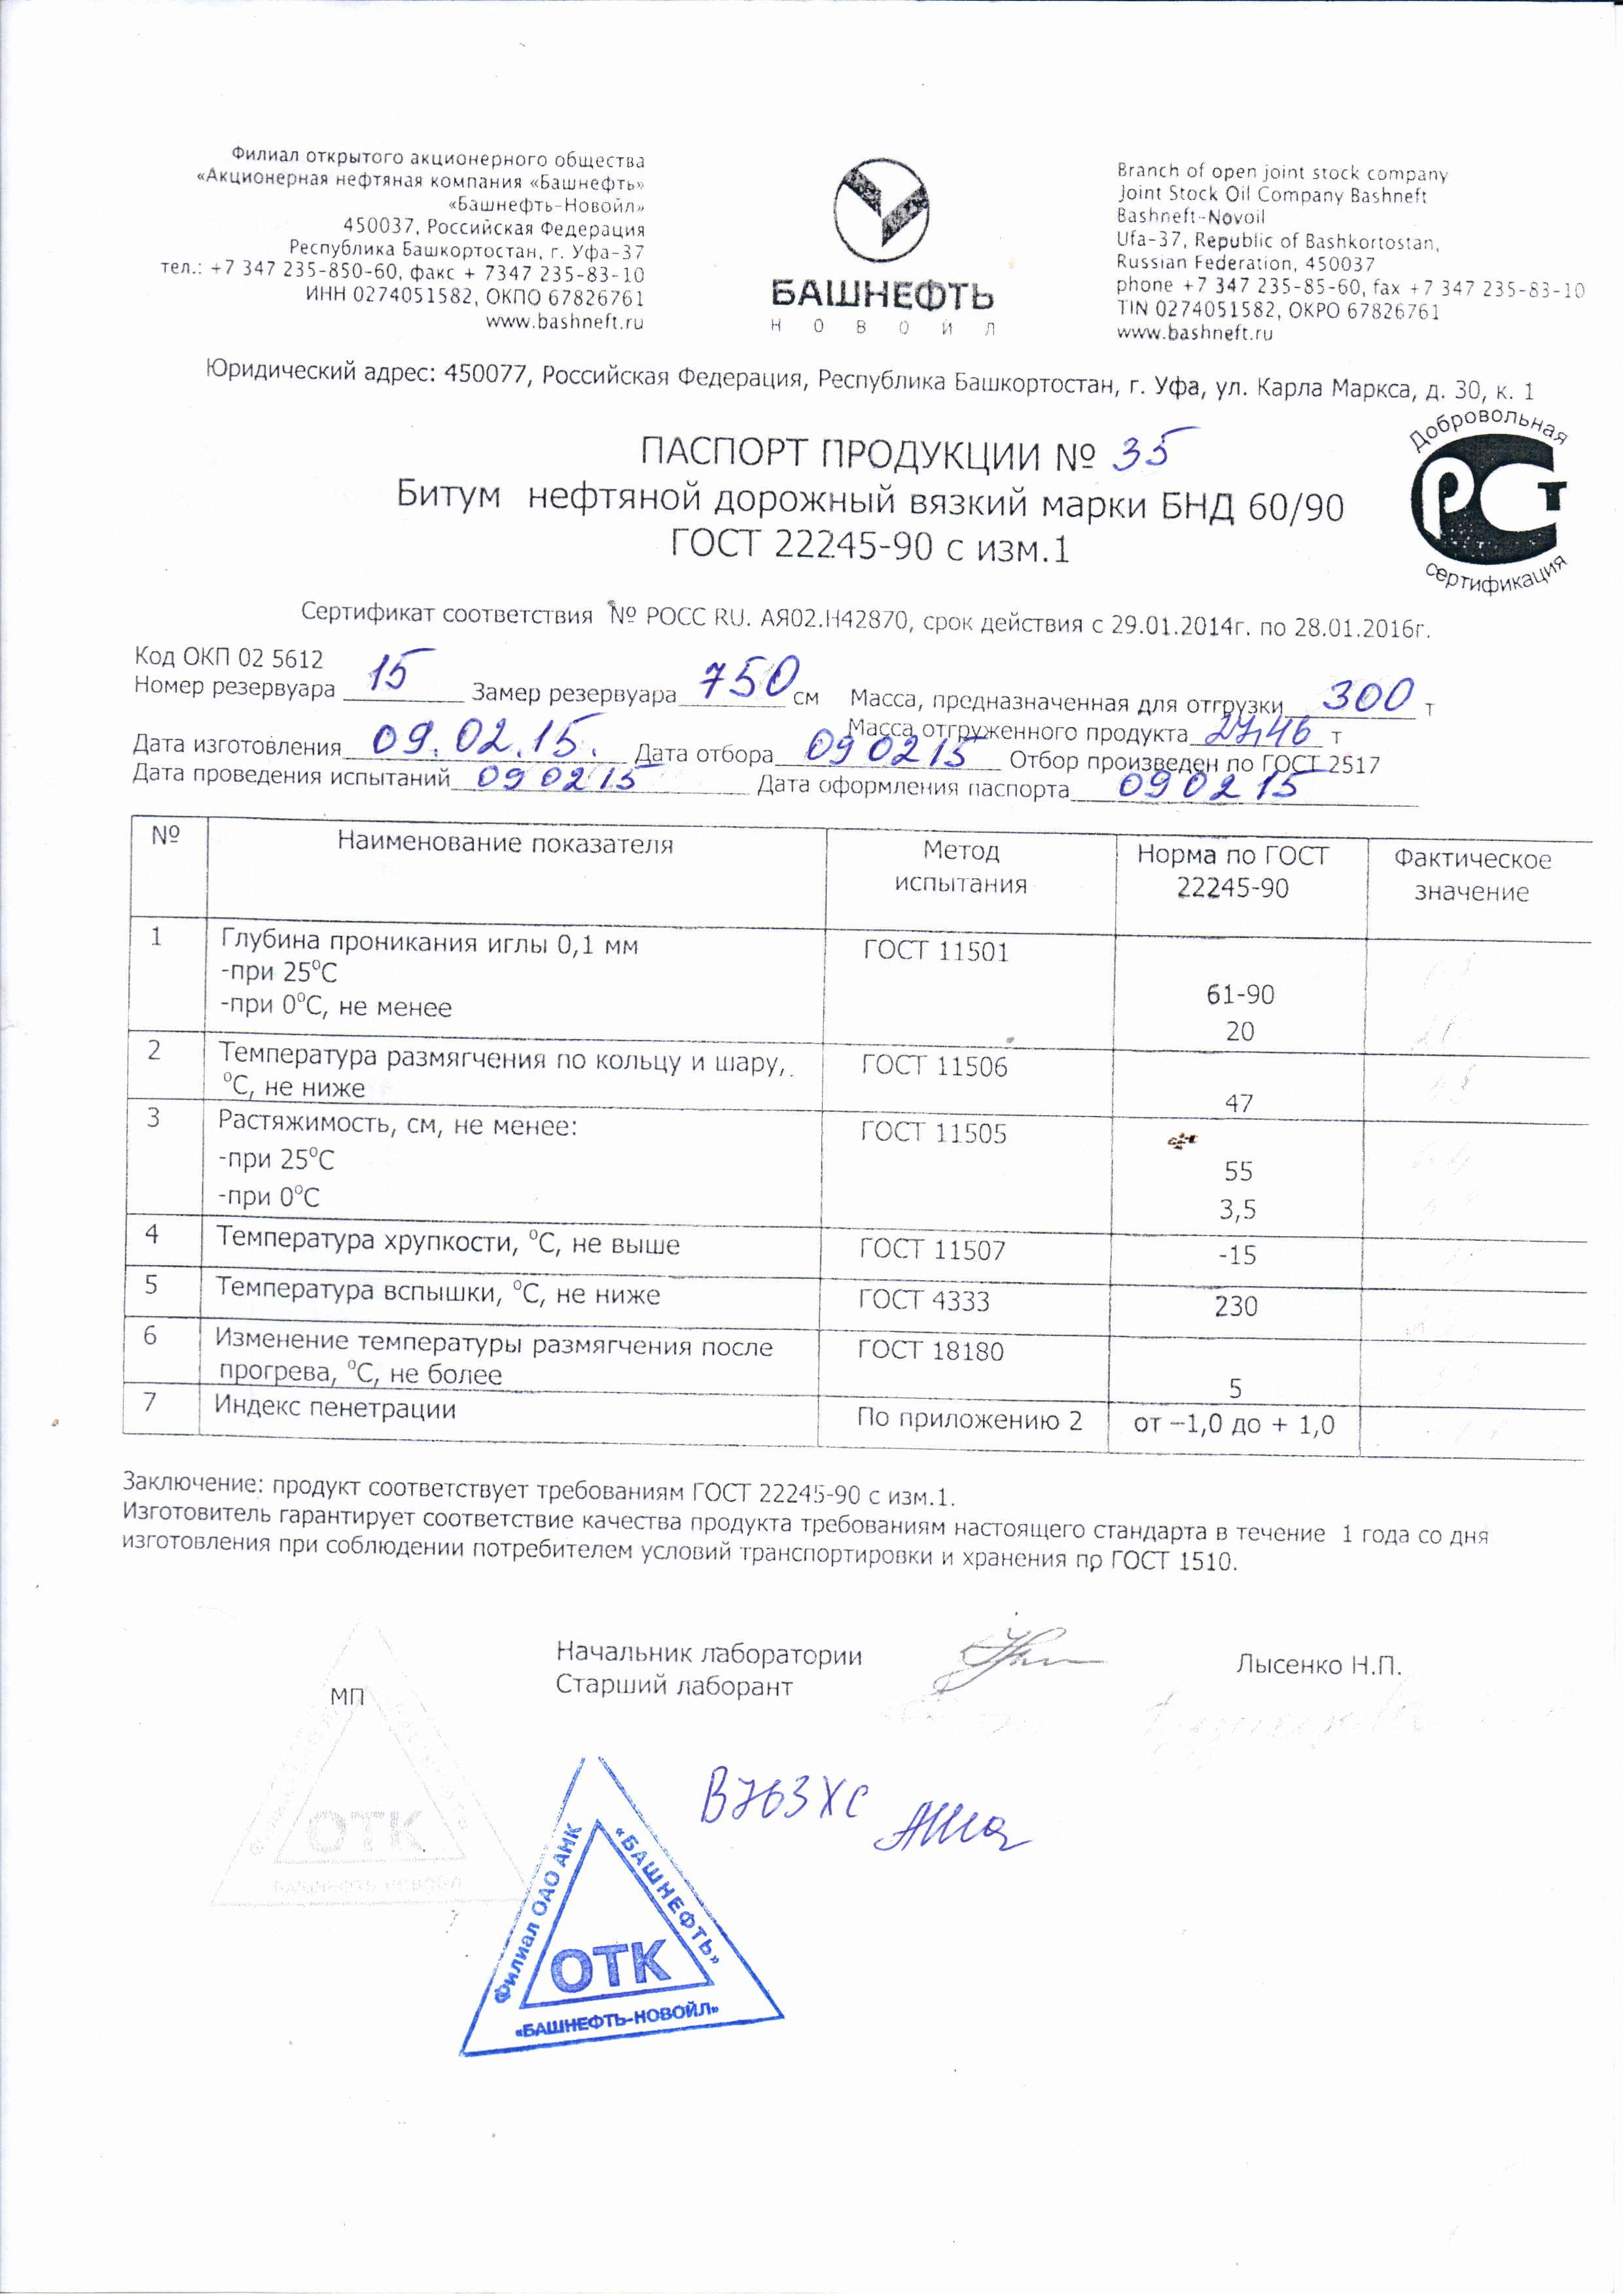 Филиал открытого акционерного общества
«Акционерная нефтяная компания «Башнефть»
«Башнефть-Новойл»
450037, Российская Федерация
Республика Башкортостан, г. Уфа-37
тел.: +7 347 235-850-60, факс + 7347 235-83-10
ИНН 0274051582, ОКПО 67826761
www.bashneft.ru
БАШНЕФТЬ
НОВОЙЛ
Branch of open joint stock company
Joint Stock Oil Company Bashneft
Bashneft-Novoil
Ufa-37, Republic of Bashkortostan,
Russian Federation, 450037
phone +7 347 235-85-60, fax +7 347 235-83-10
TIN 0274051582, OKPO 67826761
www.bashneft.ru
Юридический адрес: 450077, Российская Федерация, Республика Башкортостан, г. Уфа, ул. Карла Маркса, д. 30, к. 1
Добровольная
РСТ
сертификация
ПАСПОРТ ПРОДУКЦИИ № 35
Битум нефтяной дорожный вязкий марки БНД 60/90
ГОСТ 22245-90 с изм.1
Сертификат соответствия № РОСС RU. АЯ02.Н42870, срок действия с 29.01.2014г. по 28.01.2016г.
Код ОКП 02 5612
Номер резервуара 15 Замер резервуара 750 см Масса, предназначенная для отгрузки 300 т
Масса отгруженного продукта 27,46 т
Дата изготовления 09.02.15. Дата отбора 09 02 15 Отбор произведен по ГОСТ 2517
Дата проведения испытаний 09 02 15 Дата оформления паспорта 09 02 15
№ Наименование показателя Метод испытания Норма по ГОСТ 22245-90 Фактическое значение
1 Глубина проникания иглы 0,1 мм ГОСТ 11501
-при 25°С 61-90
-при 0°С, не менее 20
2 Температура размягчения по кольцу и шару, ГОСТ 11506
°С, не ниже 47
3 Растяжимость, см, не менее: ГОСТ 11505
-при 25°С 55
-при 0°С 3,5
4 Температура хрупкости, °С, не выше ГОСТ 11507 -15
5 Температура вспышки, °С, не ниже ГОСТ 4333 230
6 Изменение температуры размягчения после ГОСТ 18180
прогрева, °С, не более 5
7 Индекс пенетрации По приложению 2 от –1,0 до + 1,0
Заключение: продукт соответствует требованиям ГОСТ 22245-90 с изм.1.
Изготовитель гарантирует соответствие качества продукта требованиям настоящего стандарта в течение 1 года со дня
изготовления при соблюдении потребителем условий транспортировки и хранения по ГОСТ 1510.
Начальник лаборатории Лысенко Н.П.
Старший лаборант
МП
ОТК
БАШНЕФТЬ-НОВОЙЛ
В763ХС
Филиал ОАО АНК
«БАШНЕФТЬ»
ОТК
«БАШНЕФТЬ-НОВОЙЛ»